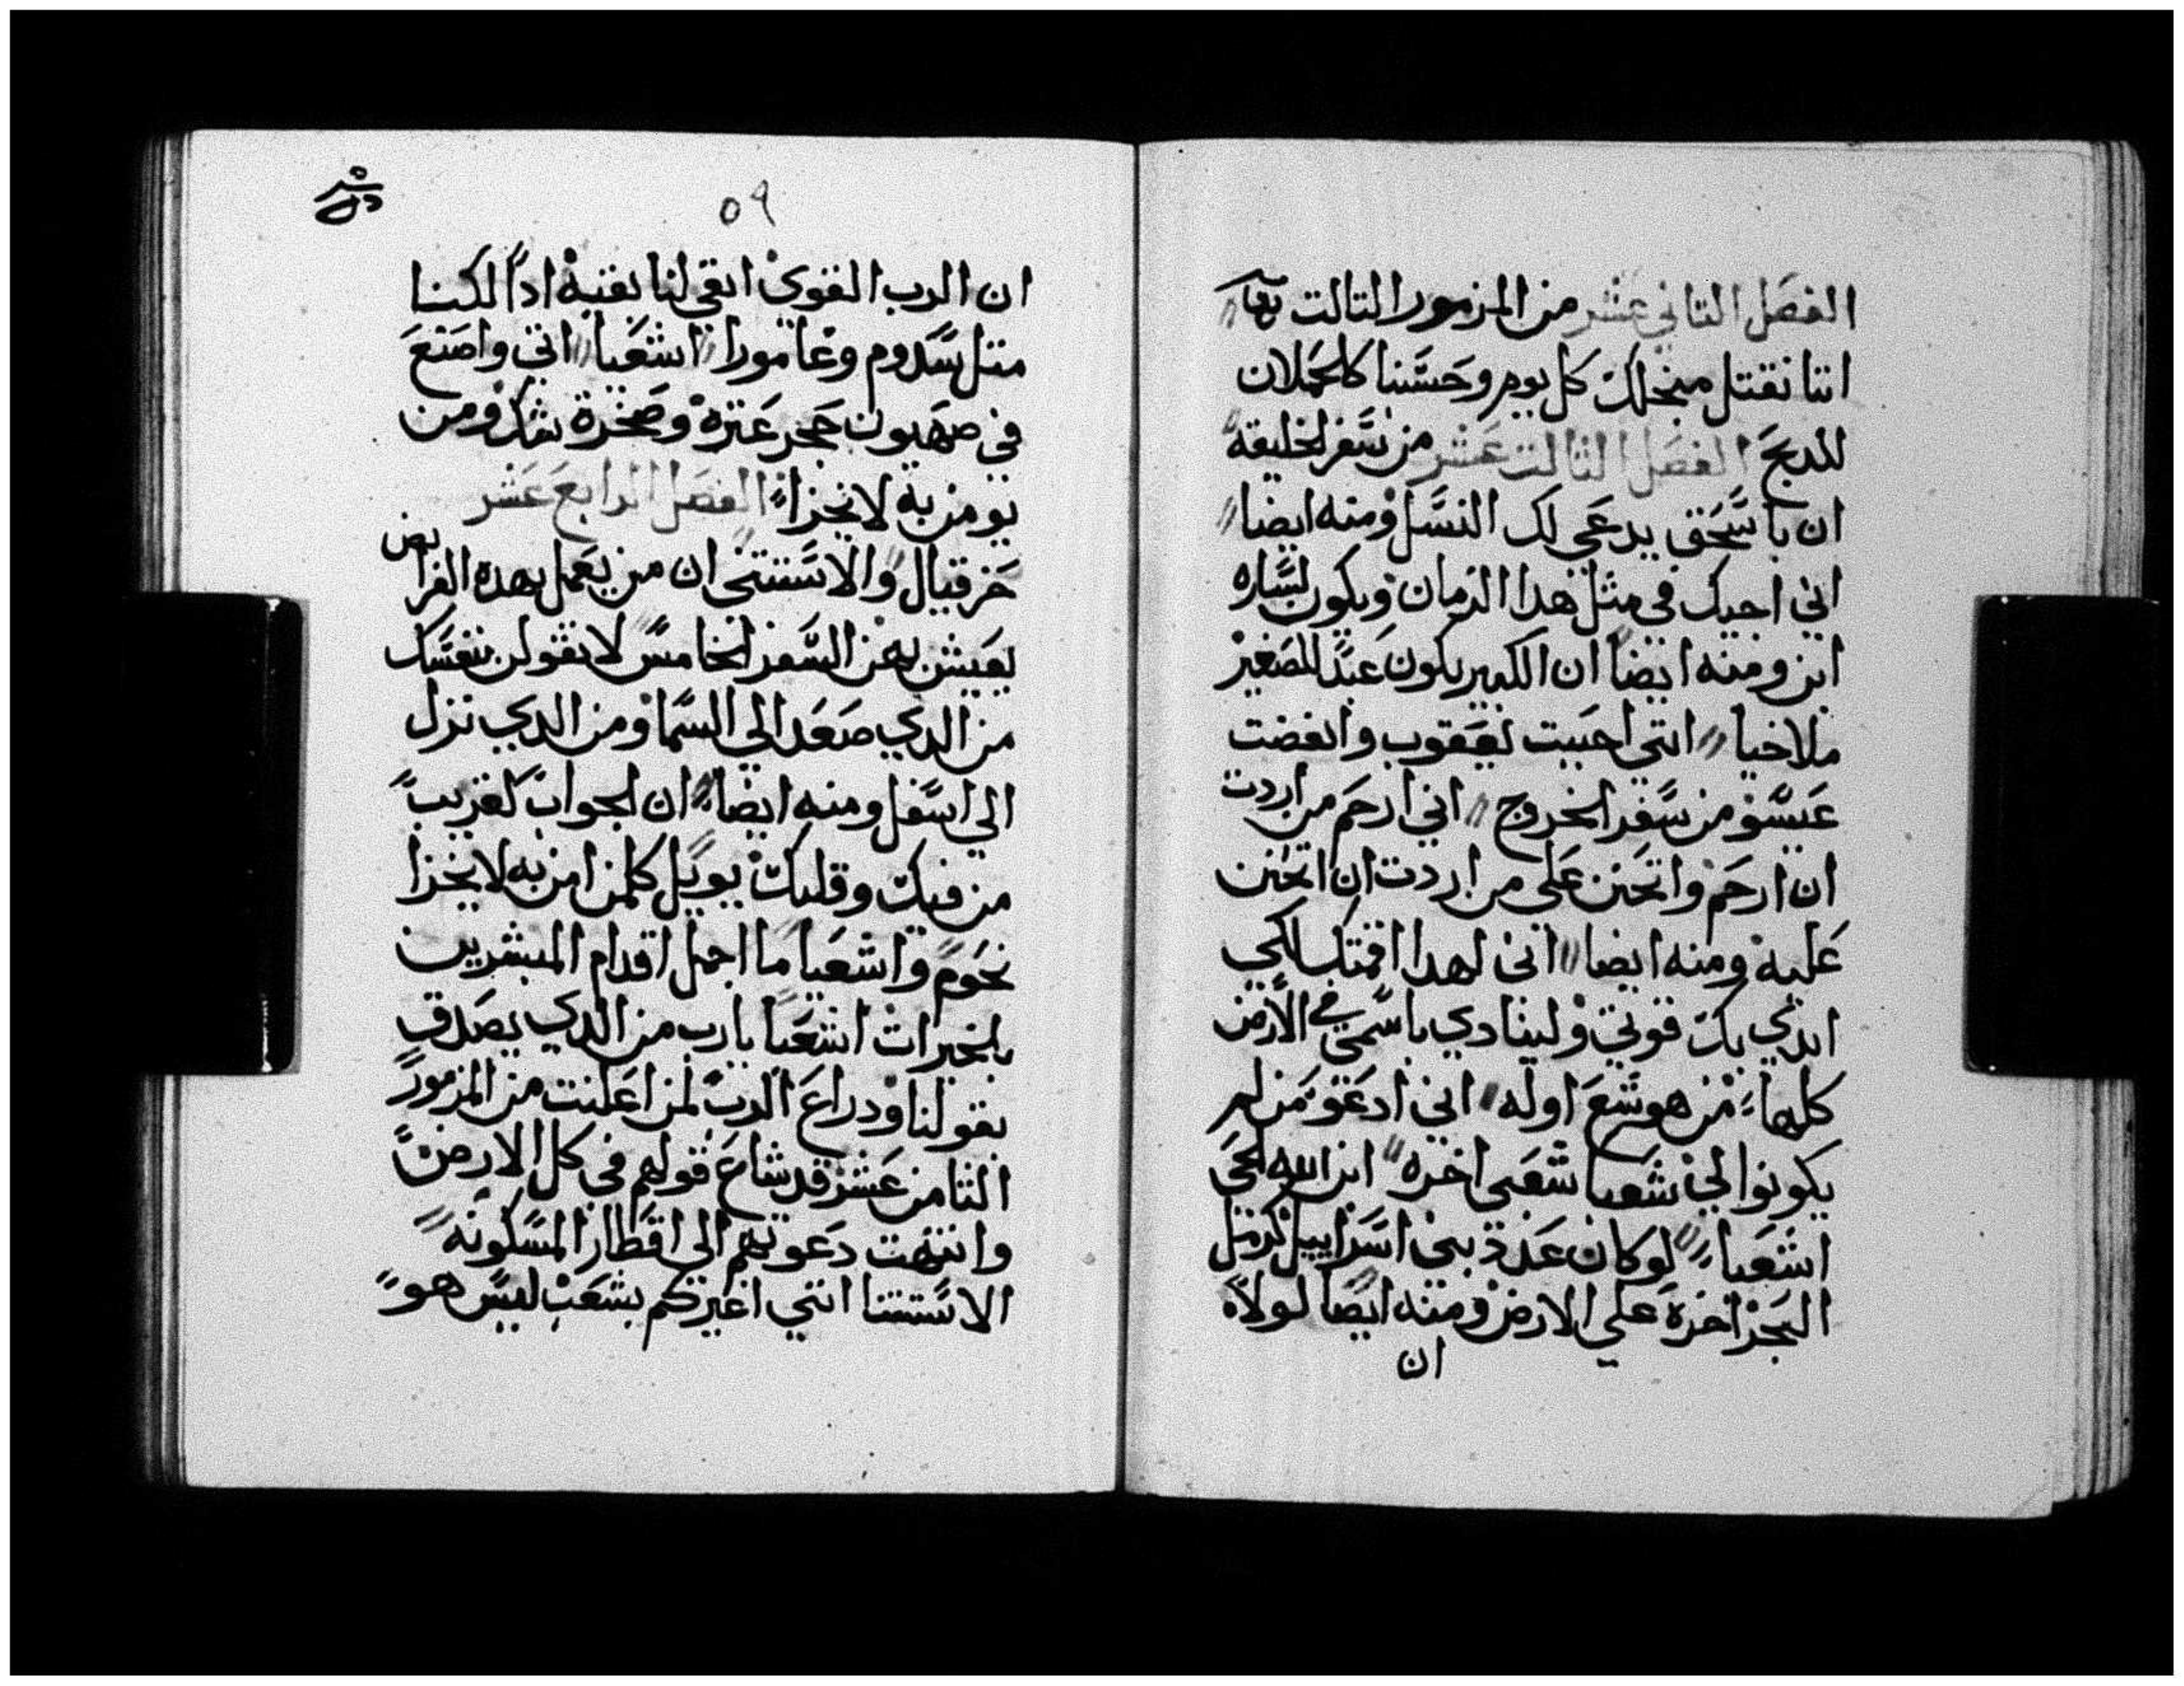 الفصل التاني عشر من المزمور التالت
اننا نقتل منجلك كل يوم وحسبنا كالحملان
للدبح الفصل التالت عشر من سفر الخليقه
ان باسحق يدعي لك النسل ومنه ايضا
اني احيك في مثل هدا الزمان ويكون لساره
ابن ومنه ايضا ان الكبير يكون عبدا للصغير
ملاخيا انني احببت يعقوب وابغضت
عيسو من سفر الخروج اني ارحم من اردت
ان ارحم واتحنن علي من اردت ان اتحنن
عليه ومنه ايضا اني لهدا اقمتك لكي
ابدي بك قوتي ولينادي باسمي في الارض
كلها من هوشع اوله اني ادعو من لم
يكونوا لي شعبا شعبي اخره ابن الله الحي
اشعيا لو كان عدة بني اسراييل كرمل
البحر اخره علي الارض ومنه ايضا لولا
ان
٥٩
ان الرب القوي ابقي لنا بقيه ادا لكنا
متل سدوم وعامورا اشعيا اني واضع
في صهيون حجر عتره وصخرة شك ومن
يومن به لا يخزا الفصل الرابع عشر
حزقيال والاستتنى ان من يعمل بهده الفرايض
يعيش بهن السفر الخامس لا تقولن بنفسك
من الدي صعد الي السما ومن الدي نزل
الي اسفل ومنه ايضا ان الجواب لقريب
من فيك وقلبك يوييل كلمن امن به لا يخزا
نحوم واشعيا ما اجمل اقدام المبشرين
بالخيرات اشعيا يارب من الدي يصدق
بقولنا ودراع الرب لمن اعلنت من المزمور
التامن عشر قد شاع قولهم في كل الارض
وانتهت دعوتهم الي اقطار المسكونه
الاستتنا انني اغيركم بشعب ليس هو